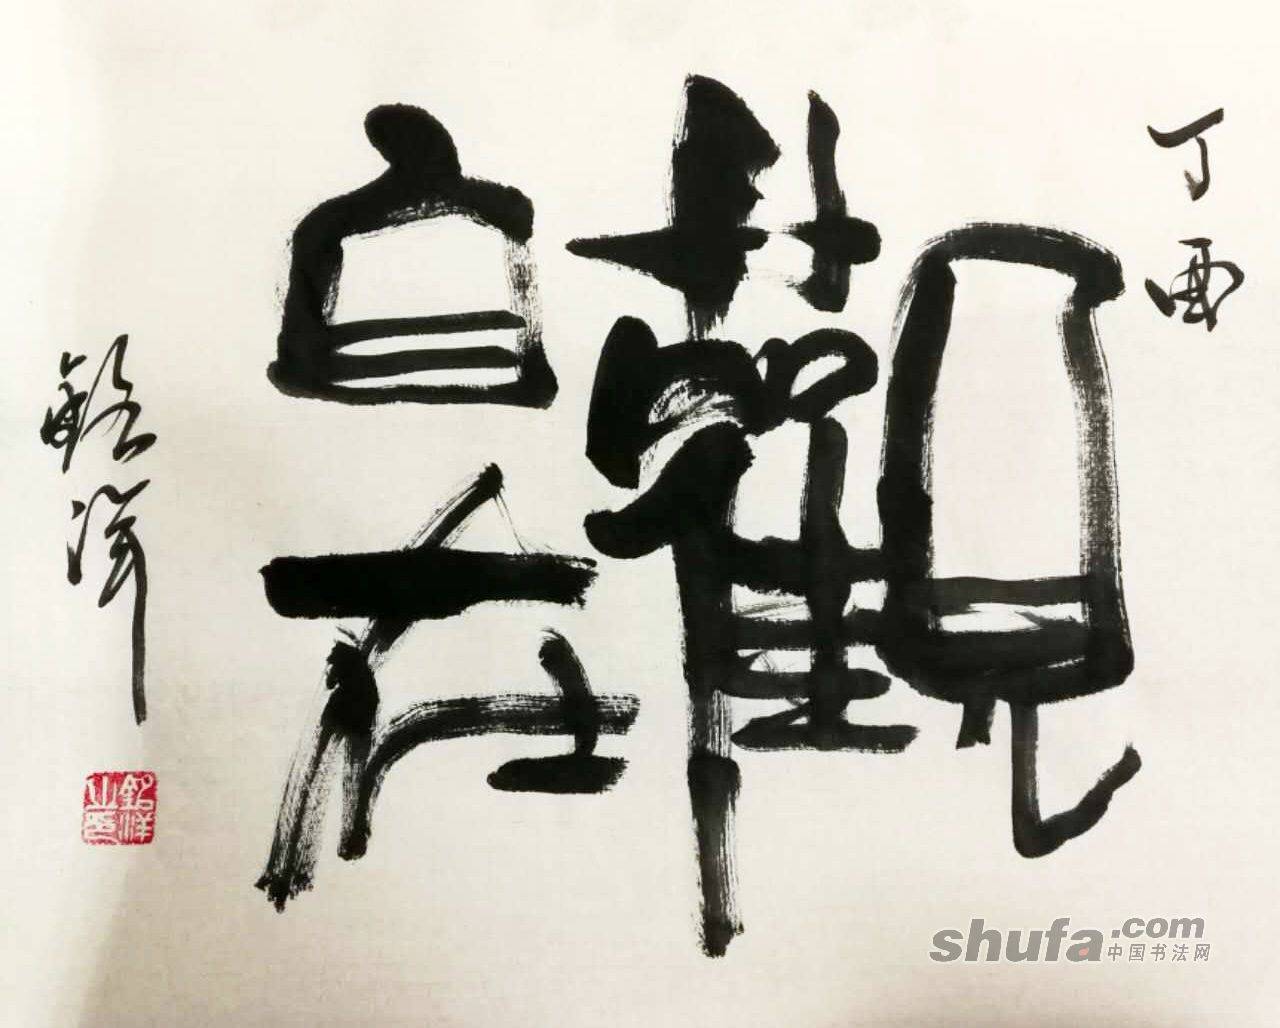 丁酉
觀自在
銘洋
銘洋之印
shufa.com
中国书法网